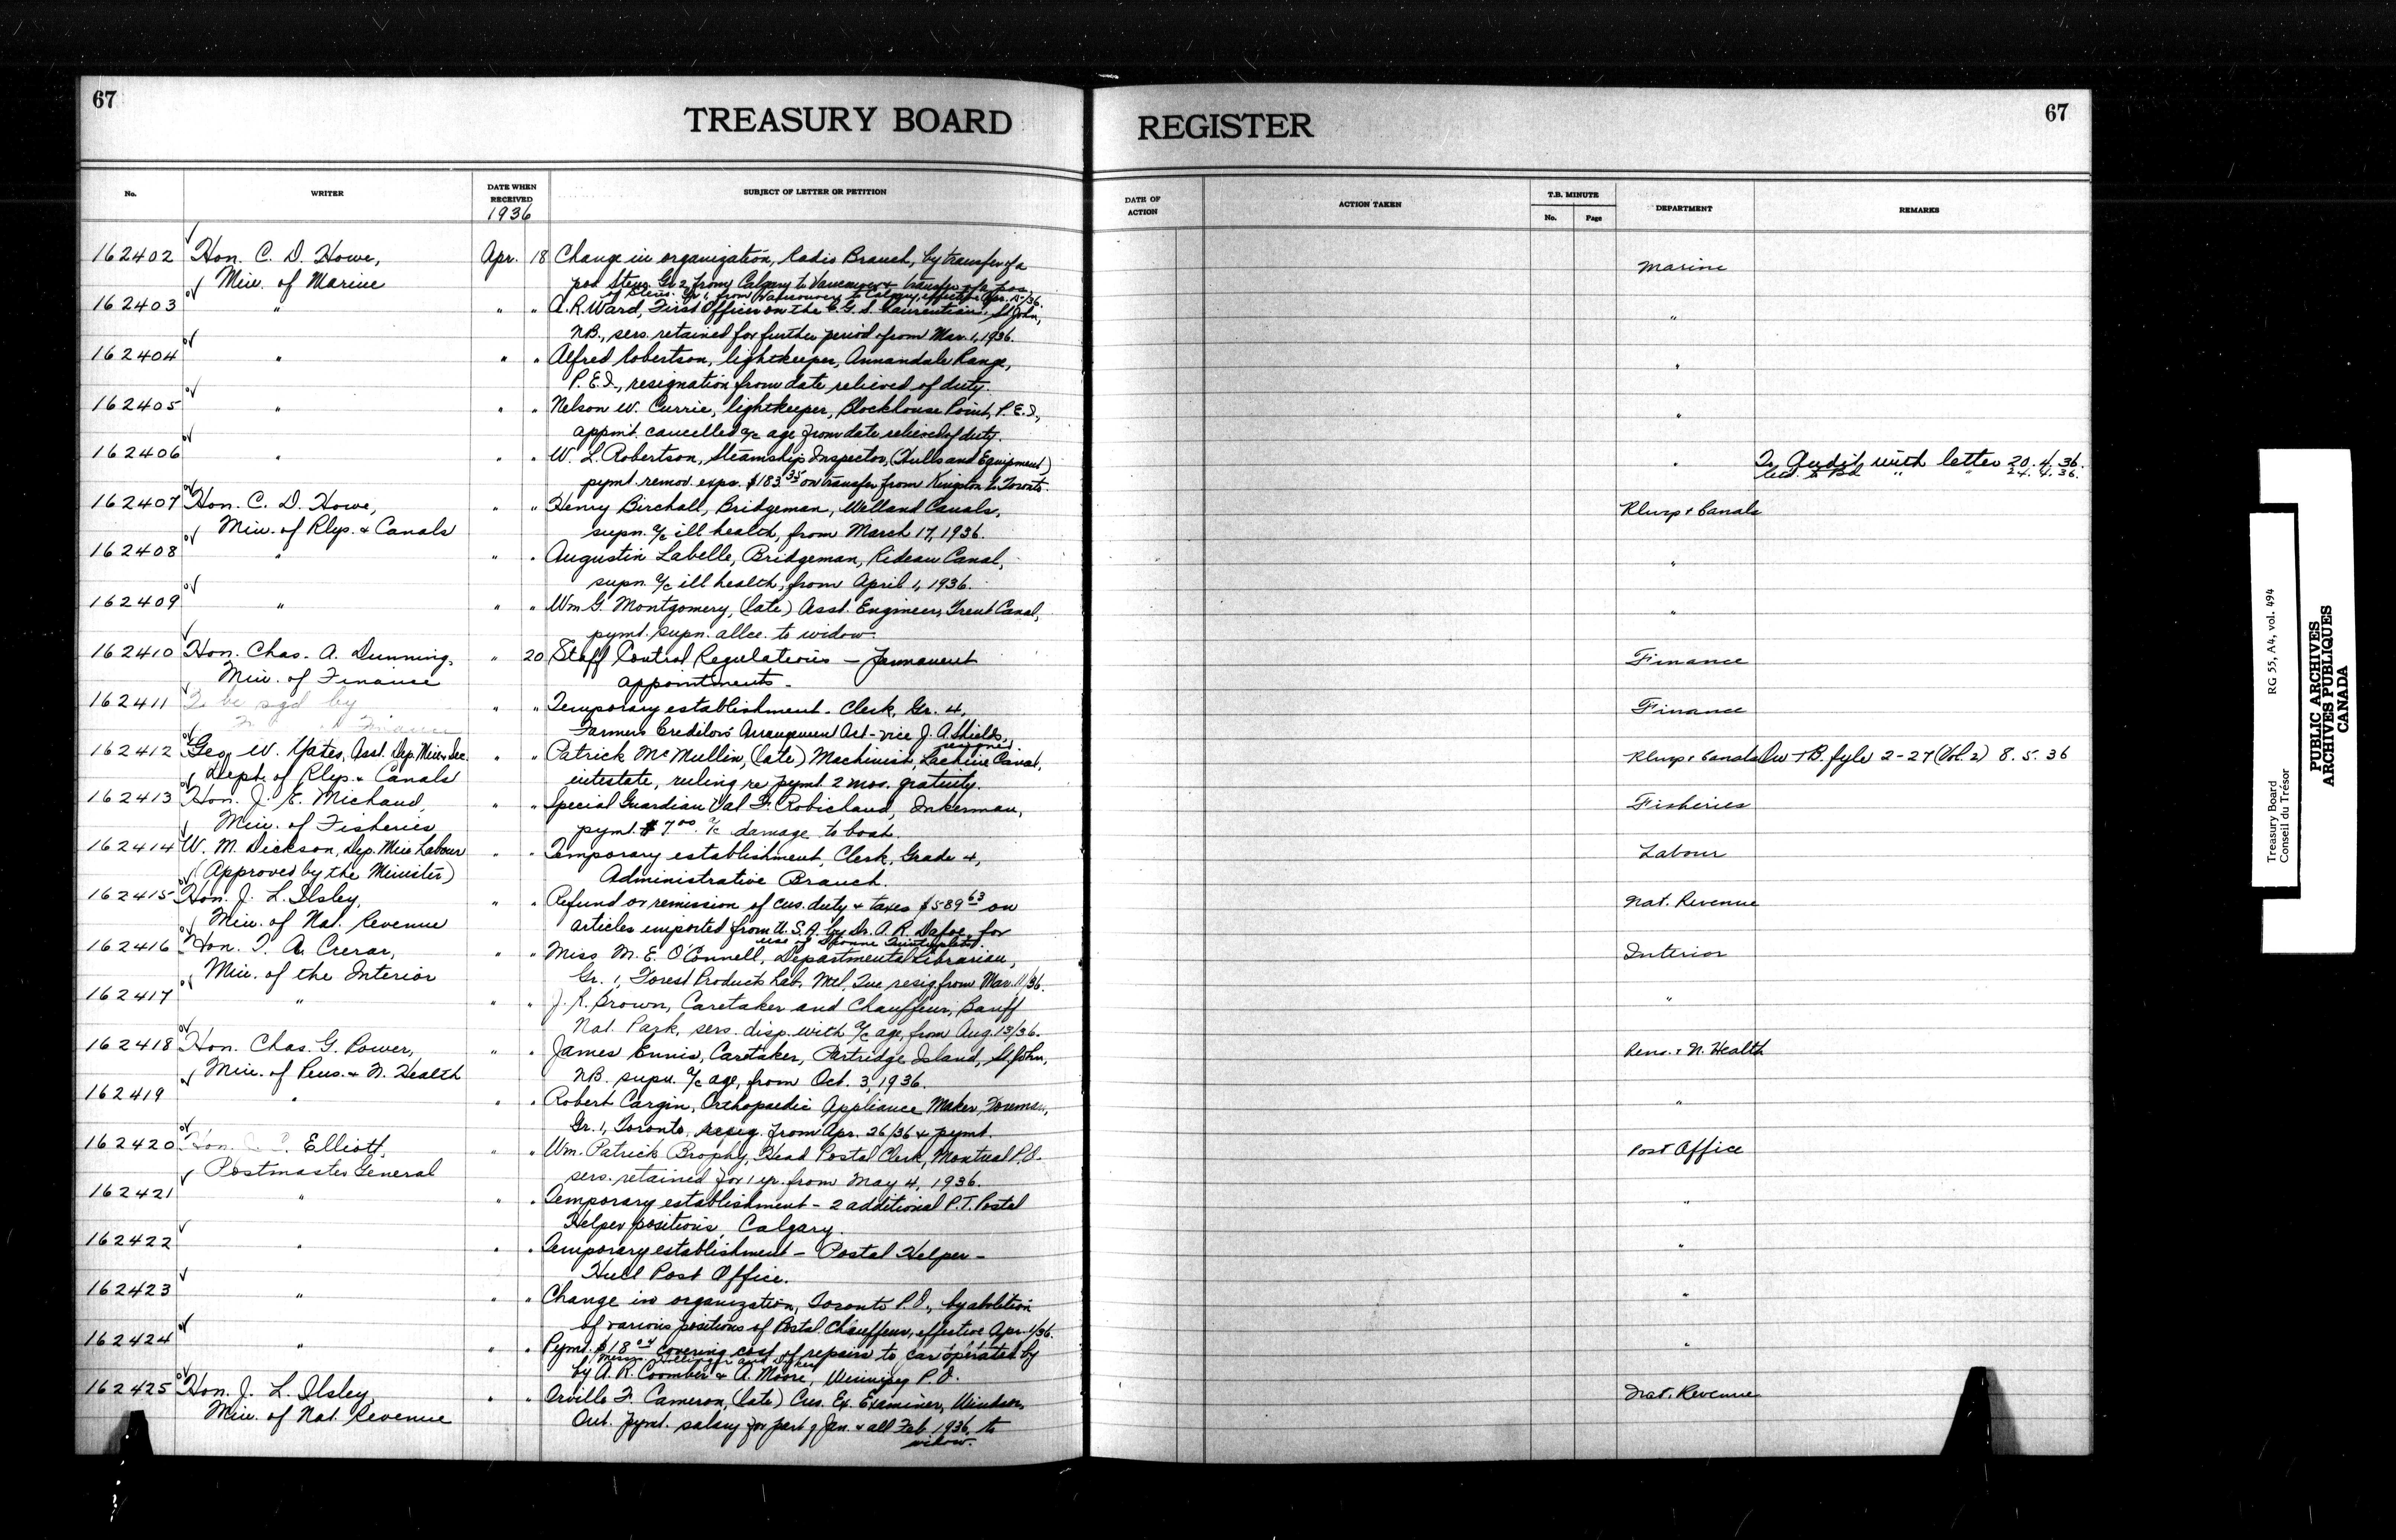 67
67
TREASURY BOARD REGISTER
No. WRITER DATE WHEN RECEIVED SUBJECT OF LETTER OR PETITION DATE OF ACTION ACTION TAKEN T.B. MINUTE No. Page DEPARTMENT REMARKS
1936
162402 Hon. C. D. Howe, Apr. 18 Change in organization, Radio Branch, by transfer of a Marine
Min. of Marine pos. Steno. Gr. 2, from Calgary to Vancouver & transfer of a pos.
of Steno. Gr. 1, from Vancouver to Calgary, effective Apr. 15/36.
162403 " " " A. R. Ward, First Officer on the C.G.S. Laurentian, St John, "
N.B., sers. retained for further period from Mar. 1, 1936.
162404 " " " Alfred Robertson, lightkeeper, Annandale Range, "
P.E.I., resignation from date relieved of duty.
162405 " " " Nelson W. Currie, lightkeeper, Blockhouse Point, P.E.I., "
appmt. cancelled a/c age from date relieved of duty.
162406 " " " W. L. Robertson, Steamship Inspector, (Hulls and Equipment) " To Audit with letter 20.4.36.
pymt. remov. exps. $183.35 on transfer from Kingston to Toronto. Retd. to Bd " " 24.4.36.
162407 Hon. C. D. Howe, " " Henry Birchall, Bridgeman, Welland Canals, Rlwys & Canals
Min. of Rlys. & Canals supn. a/c ill health, from March 17, 1936.
162408 " " " Augustin Labelle, Bridgeman, Rideau Canal, "
supn. a/c ill health, from April 1, 1936.
162409 " " " Wm G. Montgomery, (late) Asst. Engineer, Trent Canal, "
pymt. supn. allce. to widow.
162410 Hon. Chas. A. Dunning, " 20 Staff Control Regulations – Permanent Finance
Min. of Finance appointments –
162411 To be sgd by " " Temporary establishment – Clerk, Gr. 4, Finance
Farmers Creditors Arrangement Act – vice J. A. Shields,
resigned.
162412 Geo. W. Yates, Asst. Dep. Min. & Sec. " " Patrick McMullin, (late) Machinist, Lachine Canal, Rlwys & Canals On T.B. fyle 2-27 (Vol. 2) 8.5.36
Dept. of Rlys. & Canals intestate, ruling re pymt. 2 mos. gratuity.
162413 Hon. J. E. Michaud, " " Special Guardian Val F. Robichaud, Inkerman, Fisheries
Min. of Fisheries pymt. $7.00 a/c damage to boat.
162414 W. M. Dickson, Dep. Min. Labour " " Temporary establishment, Clerk, Grade 4, Labour
(Approved by the Minister) Administrative Branch.
162415 Hon. J. L. Ilsley, " " Refund or remission of cus. duty & taxes $589.63 on Nat. Revenue
Min. of Nat. Revenue articles imported from U.S.A. by Dr. A. R. Dafoe, for
use of Dionne Quintuplets.
162416 Hon. T. A. Crerar, Miss M. E. O'Connell, Departmental Librarian, Interior
Min. of the Interior Gr. 1, Forest Products Lab. Mtl, Que resig. from Mar. 11/36.
162417 " " " J. R. Brown, Caretaker and Chauffeur, Banff "
Nat. Park, sers. disp. with a/c age, from Aug. 13/36.
162418 Hon. Chas. G. Power, " " James Ennis, Caretaker, Partridge Island, St. John, Pens. & N. Health
Min. of Pens. & N. Health N.B. supn. a/c age, from Oct. 3, 1936.
162419 " " " Robert Cargin, Orthopaedic Appliance Maker, Foreman, "
Gr. 1, Toronto, resig. from Apr. 26/36 & pymt.
162420 Hon. J. C. Elliott, " " Wm. Patrick Brophy, Head Postal Clerk, Montreal P.O. Post Office
Postmaster General sers. retained for 1 yr. from May 4, 1936.
162421 " " " Temporary establishment – 2 additional P.T. Postal "
Helper positions, Calgary.
162422 " " " Temporary establishment – Postal Helper – "
Hull Post Office.
162423 " " " Change in organization, Toronto P.O., by abolition "
of various positions of Postal Chauffeur, effective Apr. 1/36.
162424 " " " Pymt. $18.04 covering cost of repairs to car operated by "
Messrs. and
by A. R. Coomber & A. Moore, Winnipeg P.O.
162425 Hon. J. L. Ilsley, " " Orville F. Cameron, (late) Cus. Ex. Examiner, Windsor, Nat. Revenue
Min. of Nat. Revenue Ont. pymt. salary for part of Jan. & all Feb. 1936, to
widow.
Treasury Board RG 55, A4, vol. 494
Conseil du Trésor
PUBLIC ARCHIVES
ARCHIVES PUBLIQUES
CANADA